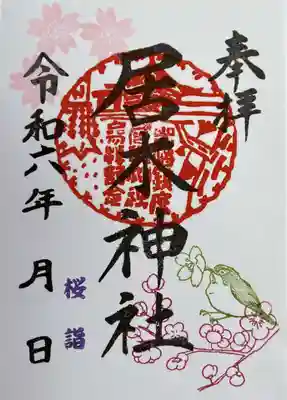 奉拝
居木神社
桜詣
令和六年 月 日